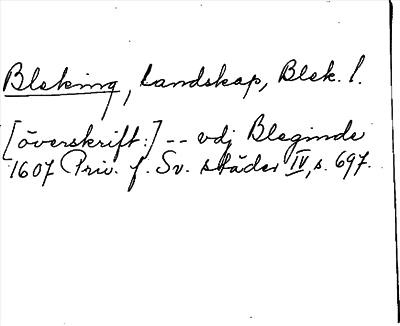 Bleking, landskap, Blek. l.
[överskrift:] -- vdj Bleginde
1607 Priv. f. Sv. städer IV, s. 697.